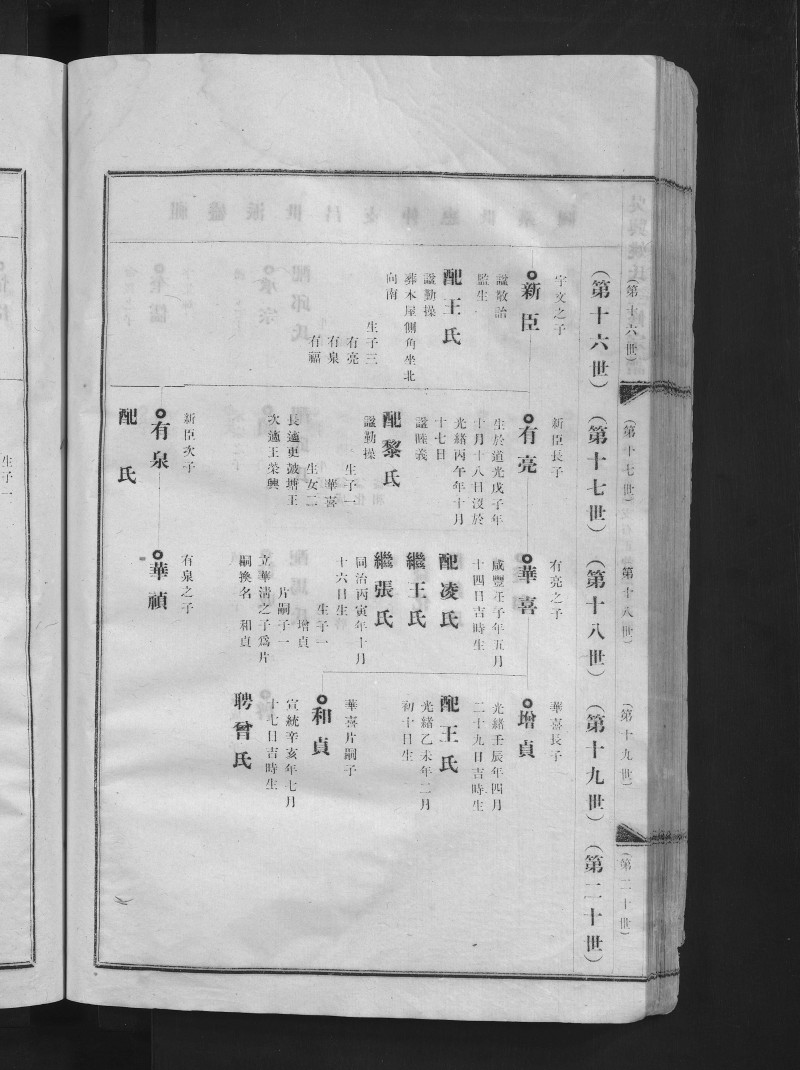 (第十六世)
(第十七世)
(第十八世)
(第十九世)
(第二十世)
(第十六世)
(第十七世)
(第十八世)
(第十九世)
(第二十世)
宇文之子
新臣
諡敬詒
監生
配王氏
諡勤操
葬木屋側角坐北
向南
生子三
有亮
有泉
有福
新臣長子
有亮
生於道光戊子年
十月十八日沒於
光緒丙午年十月
十七日
諡睦義
配黎氏
諡勤操
生子一
華喜
生女二
長適更鼓塘王
次適王榮興
新臣次子
有泉
配 氏
有亮之子
華喜
咸豐壬子年五月
十四日吉時生
配凌氏
繼王氏
繼張氏
同治丙寅年十月
十六日生
生子一
增貞
片嗣子一
立華清之子爲片
嗣換名 和貞
有泉之子
華禎
華喜長子
增貞
光緒壬辰年四月
二十九日吉時生
配王氏
光緒乙未年二月
初十日生
華喜片嗣子
和貞
宣統辛亥年七月
十七日吉時生
聘曾氏
生子一